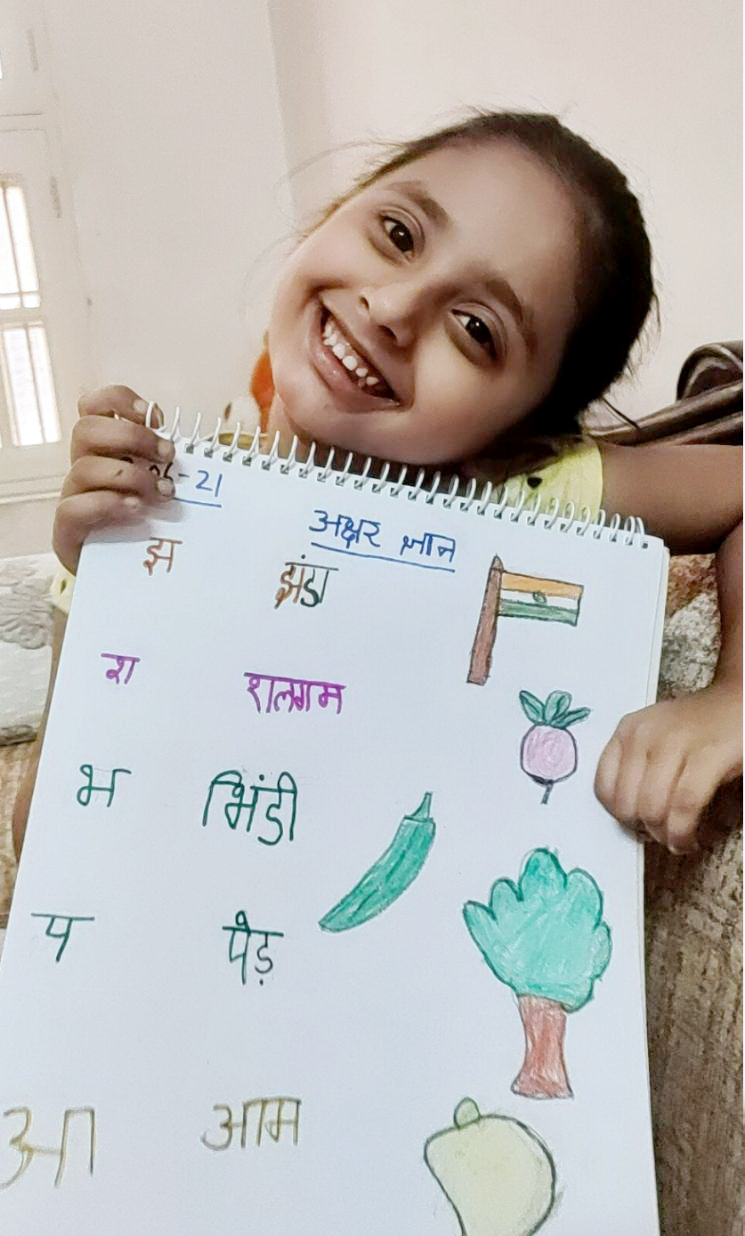 06-21
अक्षर ज्ञान
झ झंडा
श शलगम
भ भिंडी
प पेड़
आ आम